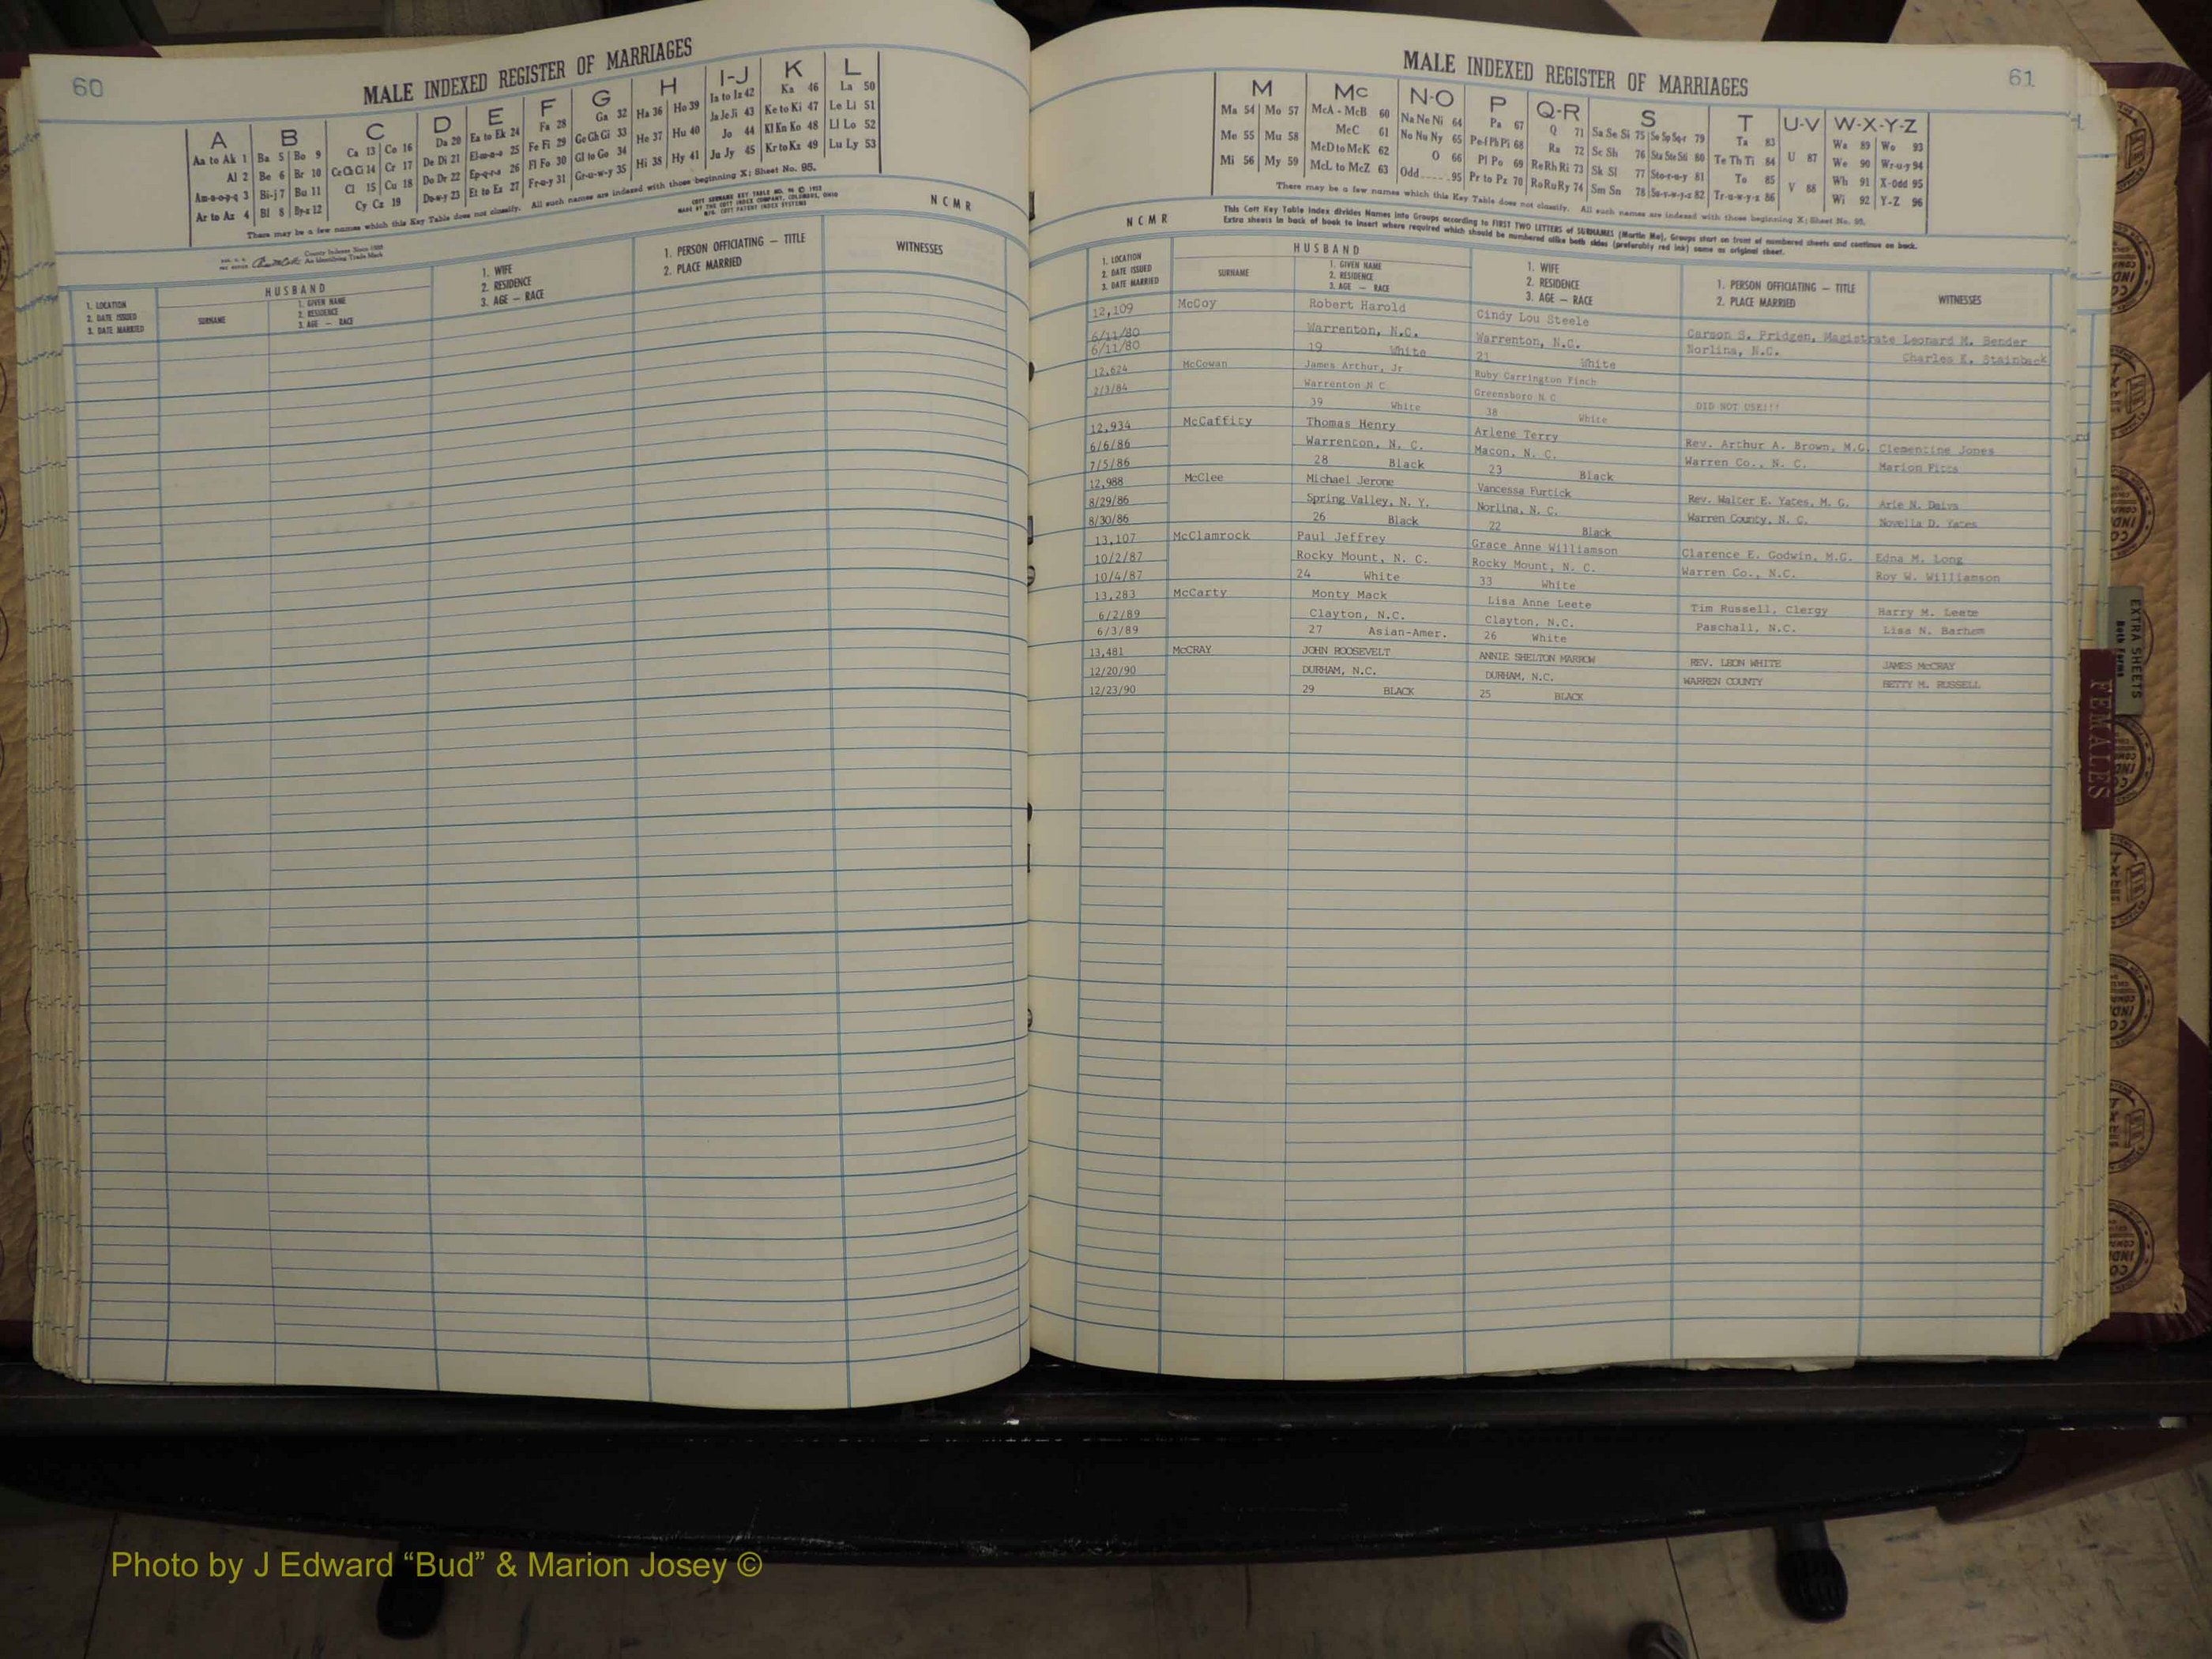 60
MALE INDEXED REGISTER OF MARRIAGES
A B C D E F G H I-J K L
Aa to Ak 1 Ba 5 Bo 9 Ca 13 Co 16 Da 20 Ea to Ek 24 Fa 28 Ga 32 Ha 36 Ho 39 Ia to Iz 42 Ka 46 La 50
Al 2 Be 6 Br 10 Ce Ch Ci 14 Cr 17 De Di 21 El-m-n-o 25 Fe Fi 29 Ge Gh Gi 33 He 37 Hu 40 Ja Je Ji 43 Ke to Ki 47 Le Li 51
Am-n-o-p-q 3 Bi-j 7 Bu 11 Cl 15 Cu 18 Do Dr 22 Ep-q-r-s 26 Fl Fo 30 Gl to Go 34 Hi 38 Hy 41 Jo 44 Kl Kn Ko 48 Ll Lo 52
Ar to Az 4 Bl 8 By-z 12 Cy Cz 19 Du-w-y 23 Et to Ez 27 Fr-u-y 31 Gr-u-w-y 35 Ju Jy 45 Kr to Kz 49 Lu Ly 53
There may be a few names which this Key Table does not classify. All such names are indexed with those beginning X; Sheet No. 95.
N C M R
County Indexes Since 1888
An Identifying Trade Mark
COTT SURNAME KEY TABLE NO. 96 © 1952
MADE BY THE COTT INDEX COMPANY, COLUMBUS, OHIO
MFG. COTT PATENT INDEX SYSTEMS
1. LOCATION
2. DATE ISSUED
3. DATE MARRIED
HUSBAND
SURNAME
1. GIVEN NAME
2. RESIDENCE
3. AGE — RACE
1. WIFE
2. RESIDENCE
3. AGE — RACE
1. PERSON OFFICIATING — TITLE
2. PLACE MARRIED
WITNESSES
MALE INDEXED REGISTER OF MARRIAGES
61
M Mc N-O P Q-R S T U-V W-X-Y-Z
Ma 54 Mo 57 McA - McB 60 Na Ne Ni 64 Pa 67 Q 71 Sa Se Si 75 So Sp Sq-r 79 Ta 83 U 87 Wa 89 Wo 93
Me 55 Mu 58 McC 61 No Nu Ny 65 Pe-f Ph Pi 68 Ra 72 Sc Sh 76 Sta Ste Sti 80 Te Th Ti 84 V 88 We 90 Wr-u-y 94
Mi 56 My 59 McD to McK 62 O 66 Pl Po 69 Re Rh Ri 73 Sk Sl 77 Sto-r-u-y 81 To 85 Wh 91 X-Odd 95
McL to McZ 63 Odd.....95 Pr to Pz 70 Ro Ru Ry 74 Sm Sn 78 Su-v-w-y-z 82 Tr-u-w-y-z 86 Wi 92 Y-Z 96
There may be a few names which this Key Table does not classify. All such names are indexed with those beginning X; Sheet No. 95.
N C M R
This Cott Key Table Index divides Names into Groups according to FIRST TWO LETTERS of SURNAMES (Martin Ma), Groups start on front of numbered sheets and continue on back.
Extra sheets in back of book to insert where required which should be numbered alike both sides (preferably red ink) same as original sheet.
1. LOCATION
2. DATE ISSUED
3. DATE MARRIED
HUSBAND
SURNAME
1. GIVEN NAME
2. RESIDENCE
3. AGE — RACE
1. WIFE
2. RESIDENCE
3. AGE — RACE
1. PERSON OFFICIATING — TITLE
2. PLACE MARRIED
WITNESSES
12,109 McCoy Robert Harold Cindy Lou Steele
6/11/80 Warrenton, N.C. Warrenton, N.C. Carson S. Pridgen, Magistrate Leonard M. Bender
6/11/80 19 White 21 White Norlina, N.C. Charles K. Stainback
12,624 McCowan James Arthur, Jr Ruby Carrington Finch
2/3/84 Warrenton N C Greensboro N C
39 White 38 White DID NOT USE!!!
12,934 McCaffity Thomas Henry Arlene Terry Rev. Arthur A. Brown, M.G. Clementine Jones
6/6/86 Warrenton, N. C. Macon, N. C. Warren Co., N. C. Marion Fitts
7/5/86 28 Black 23 Black
12,988 McClee Michael Jerone Vancessa Furtick Rev. Walter E. Yates, M. G. Arie N. Daivs
8/29/86 Spring Valley, N. Y. Norlina, N. C. Warren County, N. C. Novella D. Yates
8/30/86 26 Black 22 Black
13,107 McClamrock Paul Jeffrey Grace Anne Williamson Clarence E. Godwin, M.G. Edna M. Long
10/2/87 Rocky Mount, N. C. Rocky Mount, N. C. Warren Co., N.C. Roy W. Williamson
10/4/87 24 White 33 White
13,283 McCarty Monty Mack Lisa Anne Leete Tim Russell, Clergy Harry M. Leete
6/2/89 Clayton, N.C. Clayton, N.C. Paschall, N.C. Lisa N. Barham
6/3/89 27 Asian-Amer. 26 White
13,481 McCRAY JOHN ROOSEVELT ANNIE SHELTON MARROW REV. LEON WHITE JAMES McCRAY
12/20/90 DURHAM, N.C. DURHAM, N.C. WARREN COUNTY BETTY M. RUSSELL
12/23/90 29 BLACK 25 BLACK
EXTRA SHEETS
Both Forms
FEMALES
Photo by J Edward “Bud” & Marion Josey ©